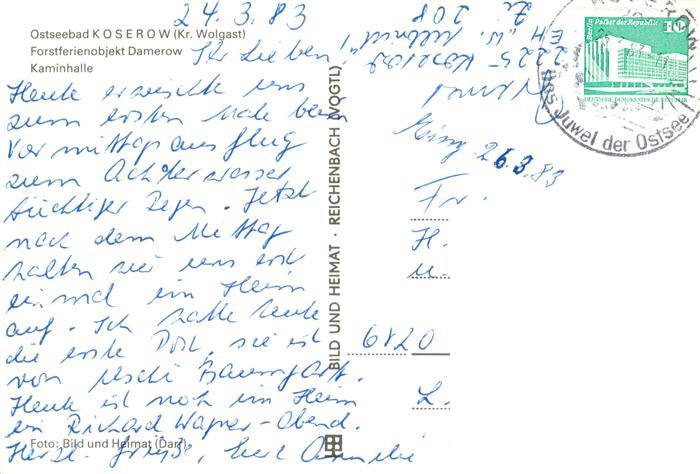 24.3.83
Ostseebad KOSEROW (Kr. Wolgast)
Forstferienobjekt Damerow
Kaminhalle
Ihr Lieben,
Heute erwischte uns
zum ersten Male beim
Vormittagsausflug
zum Achterwasser
tüchtiger Regen. Jetzt
nach dem Mittag
halten wir uns erst
einmal im Heim
auf. Ich hatte heute
die erste Post, sie ist
von Uschi Baumgart.
Heute ist noch im Heim
ein Richard Wagner-Abend.
Herzl. Grüße, Eure
Foto: Bild und Heimat (Darr)
BILD UND HEIMAT · REICHENBACH (VOGTL)
2225 Koserow
EH
Zi. 208
Eing. 26.3.83
Fr.
H.
u.
6820
L.
Berlin Palast der Republik
10
DEUTSCHE DEMOKRATISCHE REPUBLIK
KOSEROW
Das Juwel der Ostsee